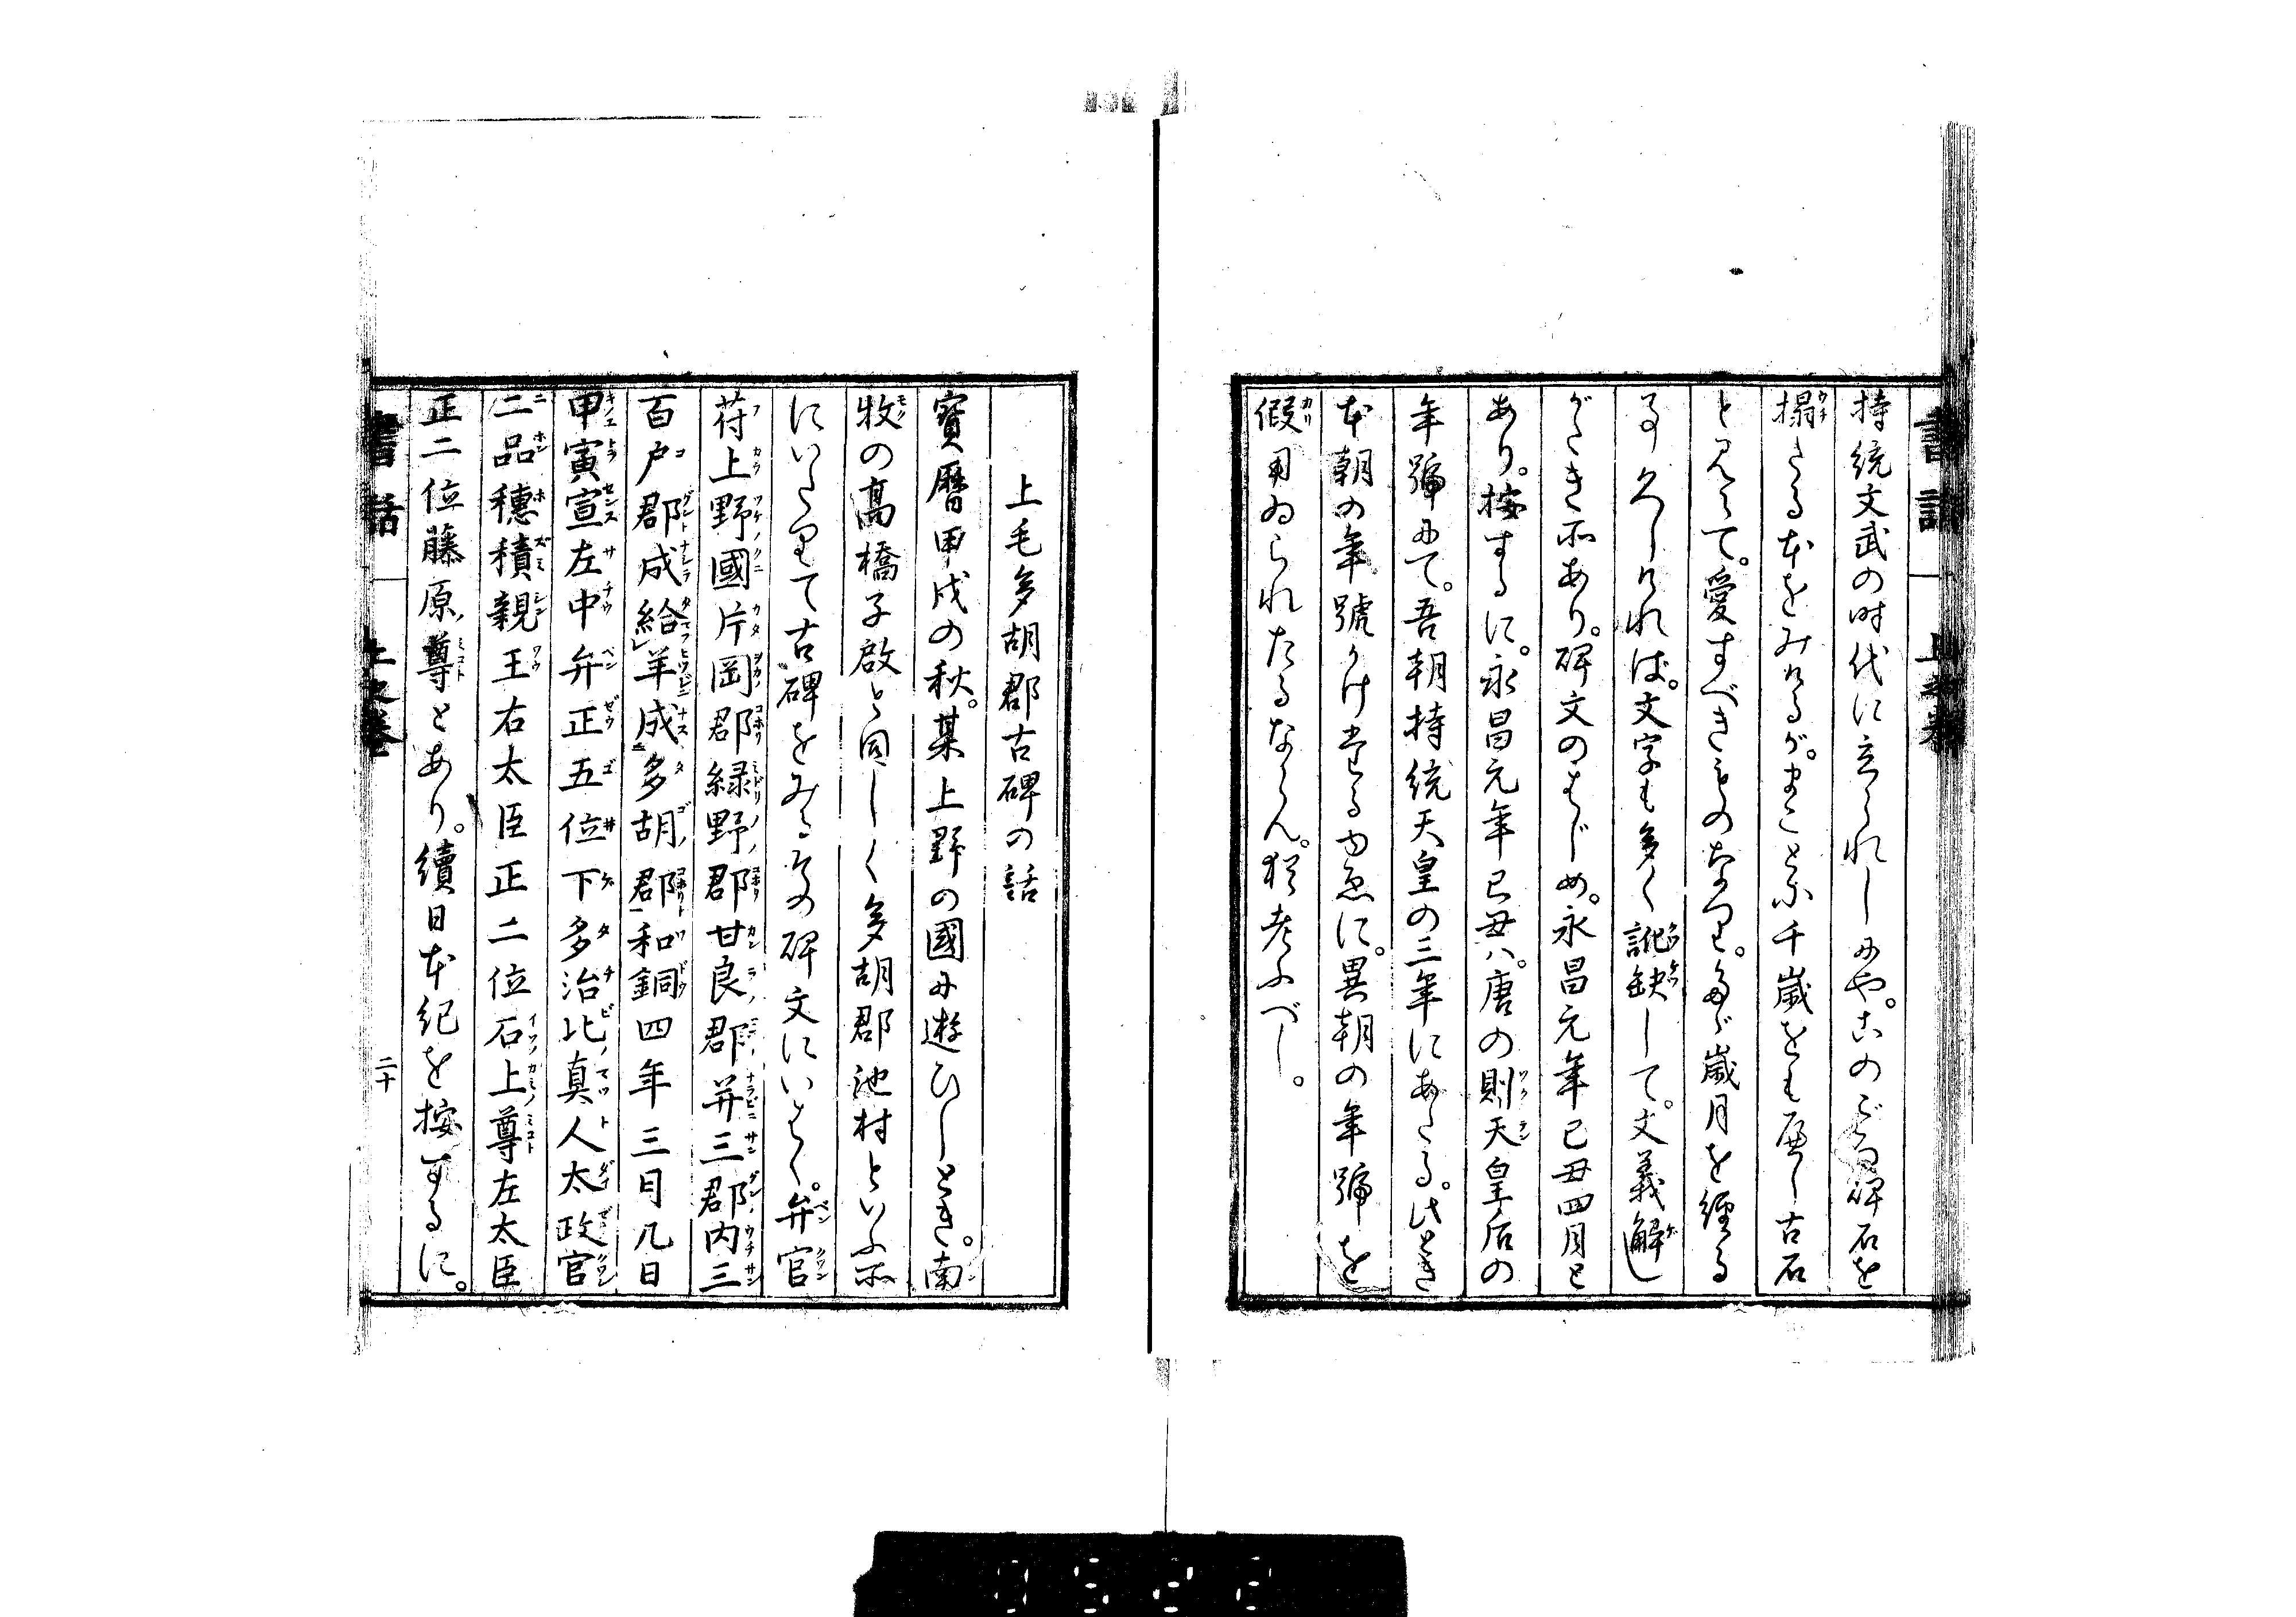 持統文武の時代に立られしにや。このごろ碑石を
搨たる本をみけるが。まことに千歳をも歴し古石
と見えて。愛すべきものなり。多く歳月を経る
事久しければ。文字も多く訛缺して。文義解し
がたき所あり。碑文のはじめ。永昌元年己丑四月と
あり。按するに。永昌元年己丑ハ。唐の則天皇后の
年號にて。吾朝持統天皇の三年にあたる。此とき
本朝の年號かけたるゆゑに。異朝の年號を
假用ゐられたるならん。猶考ふべし。
上毛多胡郡古碑の話
寶暦甲戌の秋。某上野の國に遊ひしとき。南
牧の髙橋子啟と同しく多胡郡池村といふ所
にいたりて古碑をみる。その碑文にいはく。弁官
苻上野國片岡郡緑野郡甘良郡并三郡内三
百戸郡成給羊成多胡郡和銅四年三月九日
甲寅宣左中弁正五位下多治比真人太政官
二品穗積親王右太臣正二位石上尊左太臣
正二位藤原尊とあり。續日本紀を按するに。
書話
上之巻
二十